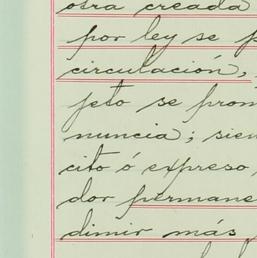 otra creada
por ley se p
circulación,
jeto se pron
nuncia; sien
cito ó expreso,
dor permane
dimir más